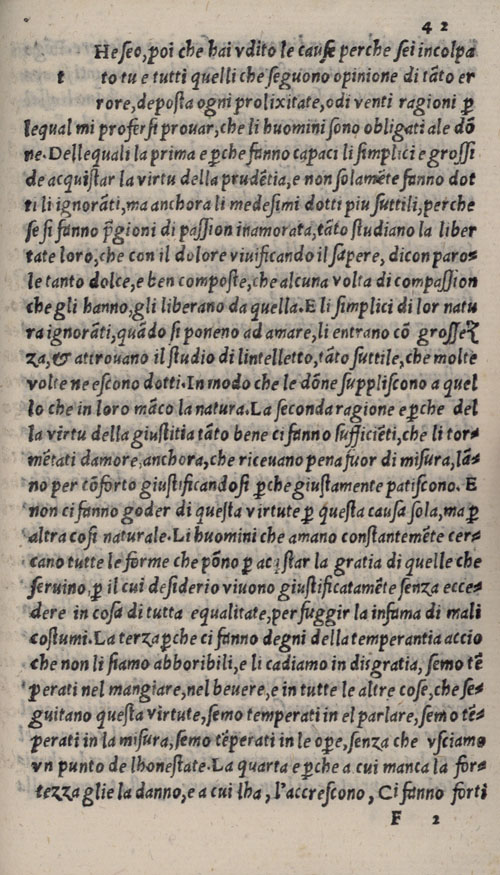 42
Heseo, poi che hai vdito le cause perche sei incolpa
t to tu e tutti quelli che seguono opinione di tãto er
rore, deposta ogni prolixitate, odi venti ragioni ꝑ
lequal mi profersi prouar, che li huomini sono obligati ale dõ
ne. Dellequali la prima e ꝑche fanno capaci li simplici e grossi
de acquistar la virtu della prudẽtia, e non solamẽte fanno dot
ti li ignorãti, ma anchora li medesimi dotti piu suttili, perche
se si fanno p̃gioni di passion inamorata, tãto studiano la liber
tate loro, che con il dolore viuificando il sapere, dicon paro-
le tanto dolce, e ben composte, che alcuna volta di compassion
che gli hanno, gli liberano da quella. E li simplici di lor natu
ra ignorãti, quãdo si poneno ad amare, li entrano cõ grossez
za, & attrouano il studio di lintelletto, tãto suttile, che molte
volte ne escono dotti. In modo che le dõne suppliscono a quel
lo che in loro mãco la natura. La seconda ragione e ꝑche del
la virtu della giustitia tãto bene ci fanno sufficiẽti, che li tor-
mẽtati damore, anchora, che riceuano pena fuor di misura, lã-
no per cõforto giustificandosi ꝑche giustamente patiscono. E
non ci fanno goder di questa virtute ꝑ questa causa sola, ma ꝑ
altra cosi naturale. Li huomini che amano constantemẽte cer-
cano tutte le forme che põno ꝑ acqstar la gratia di quelle che
seruino, ꝑ il cui desiderio viuono giustificatamẽte senza ecce-
dere in cosa di tutta equalitate, per fuggir la infama di mali
costumi. La terza ꝑche ci fanno degni della temperantia accio
che non li siamo abboribili, e li cadiamo in disgratia, semo tẽ
perati nel mangiare, nel beuere, e in tutte le altre cose, che se-
guitano questa virtute, semo temperati in el parlare, semo tẽ-
perati in la misura, semo tẽperati in le oꝑe, senza che vsciamo
vn punto de lhonestate. La quarta e ꝑche a cui manca la for-
tezza glie la danno, e a cui lha, l'accrescono, Ci fanno forti
F 2